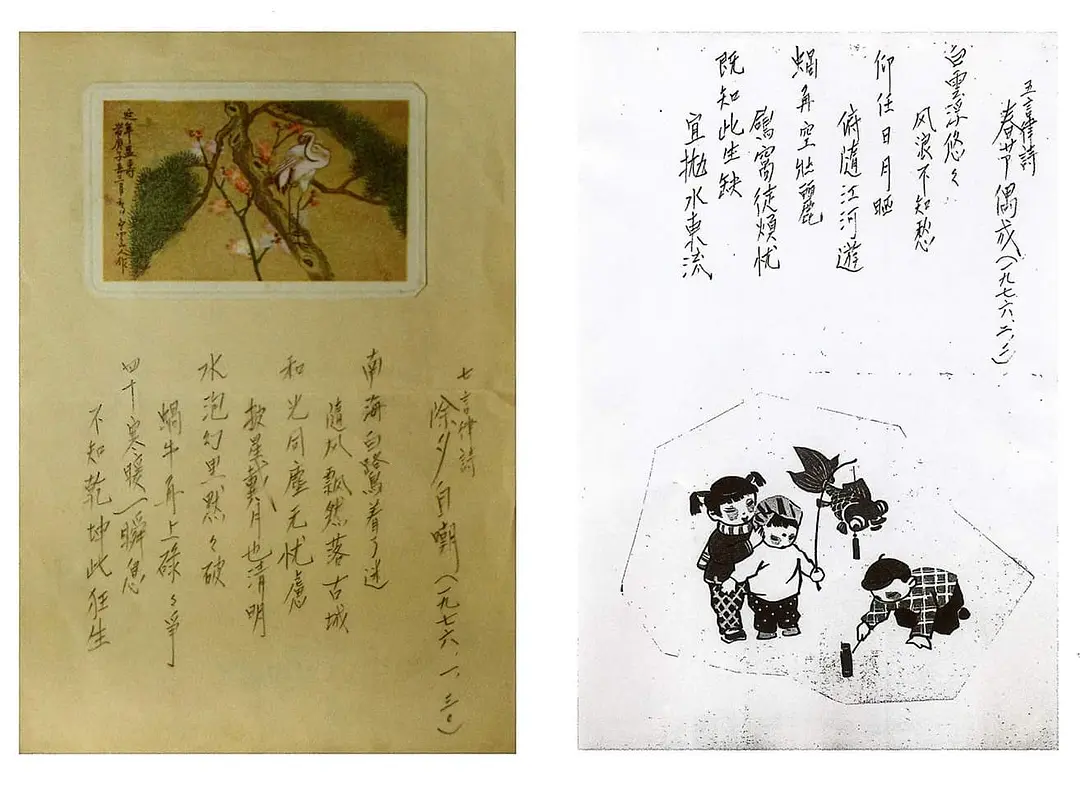 延年益壽
七言律詩
除夕自嘲(一九七六.一.三〇)
南海白鷺着了迷
隨风飄然落古城
和光同塵无忧慮
披星戴月也清明
水泡幻里默々破
蝸牛角上碌々爭
四十寒暖一瞬息
不知乾坤此狂生
五言律詩
春节偶成(一九七六.二.二)
白雲浮悠々
风浪不知愁
仰任日月晒
俯隨江河遊
蝸角空壯麗
鴿窩徒煩忧
既知此生缺
宜拋水東流